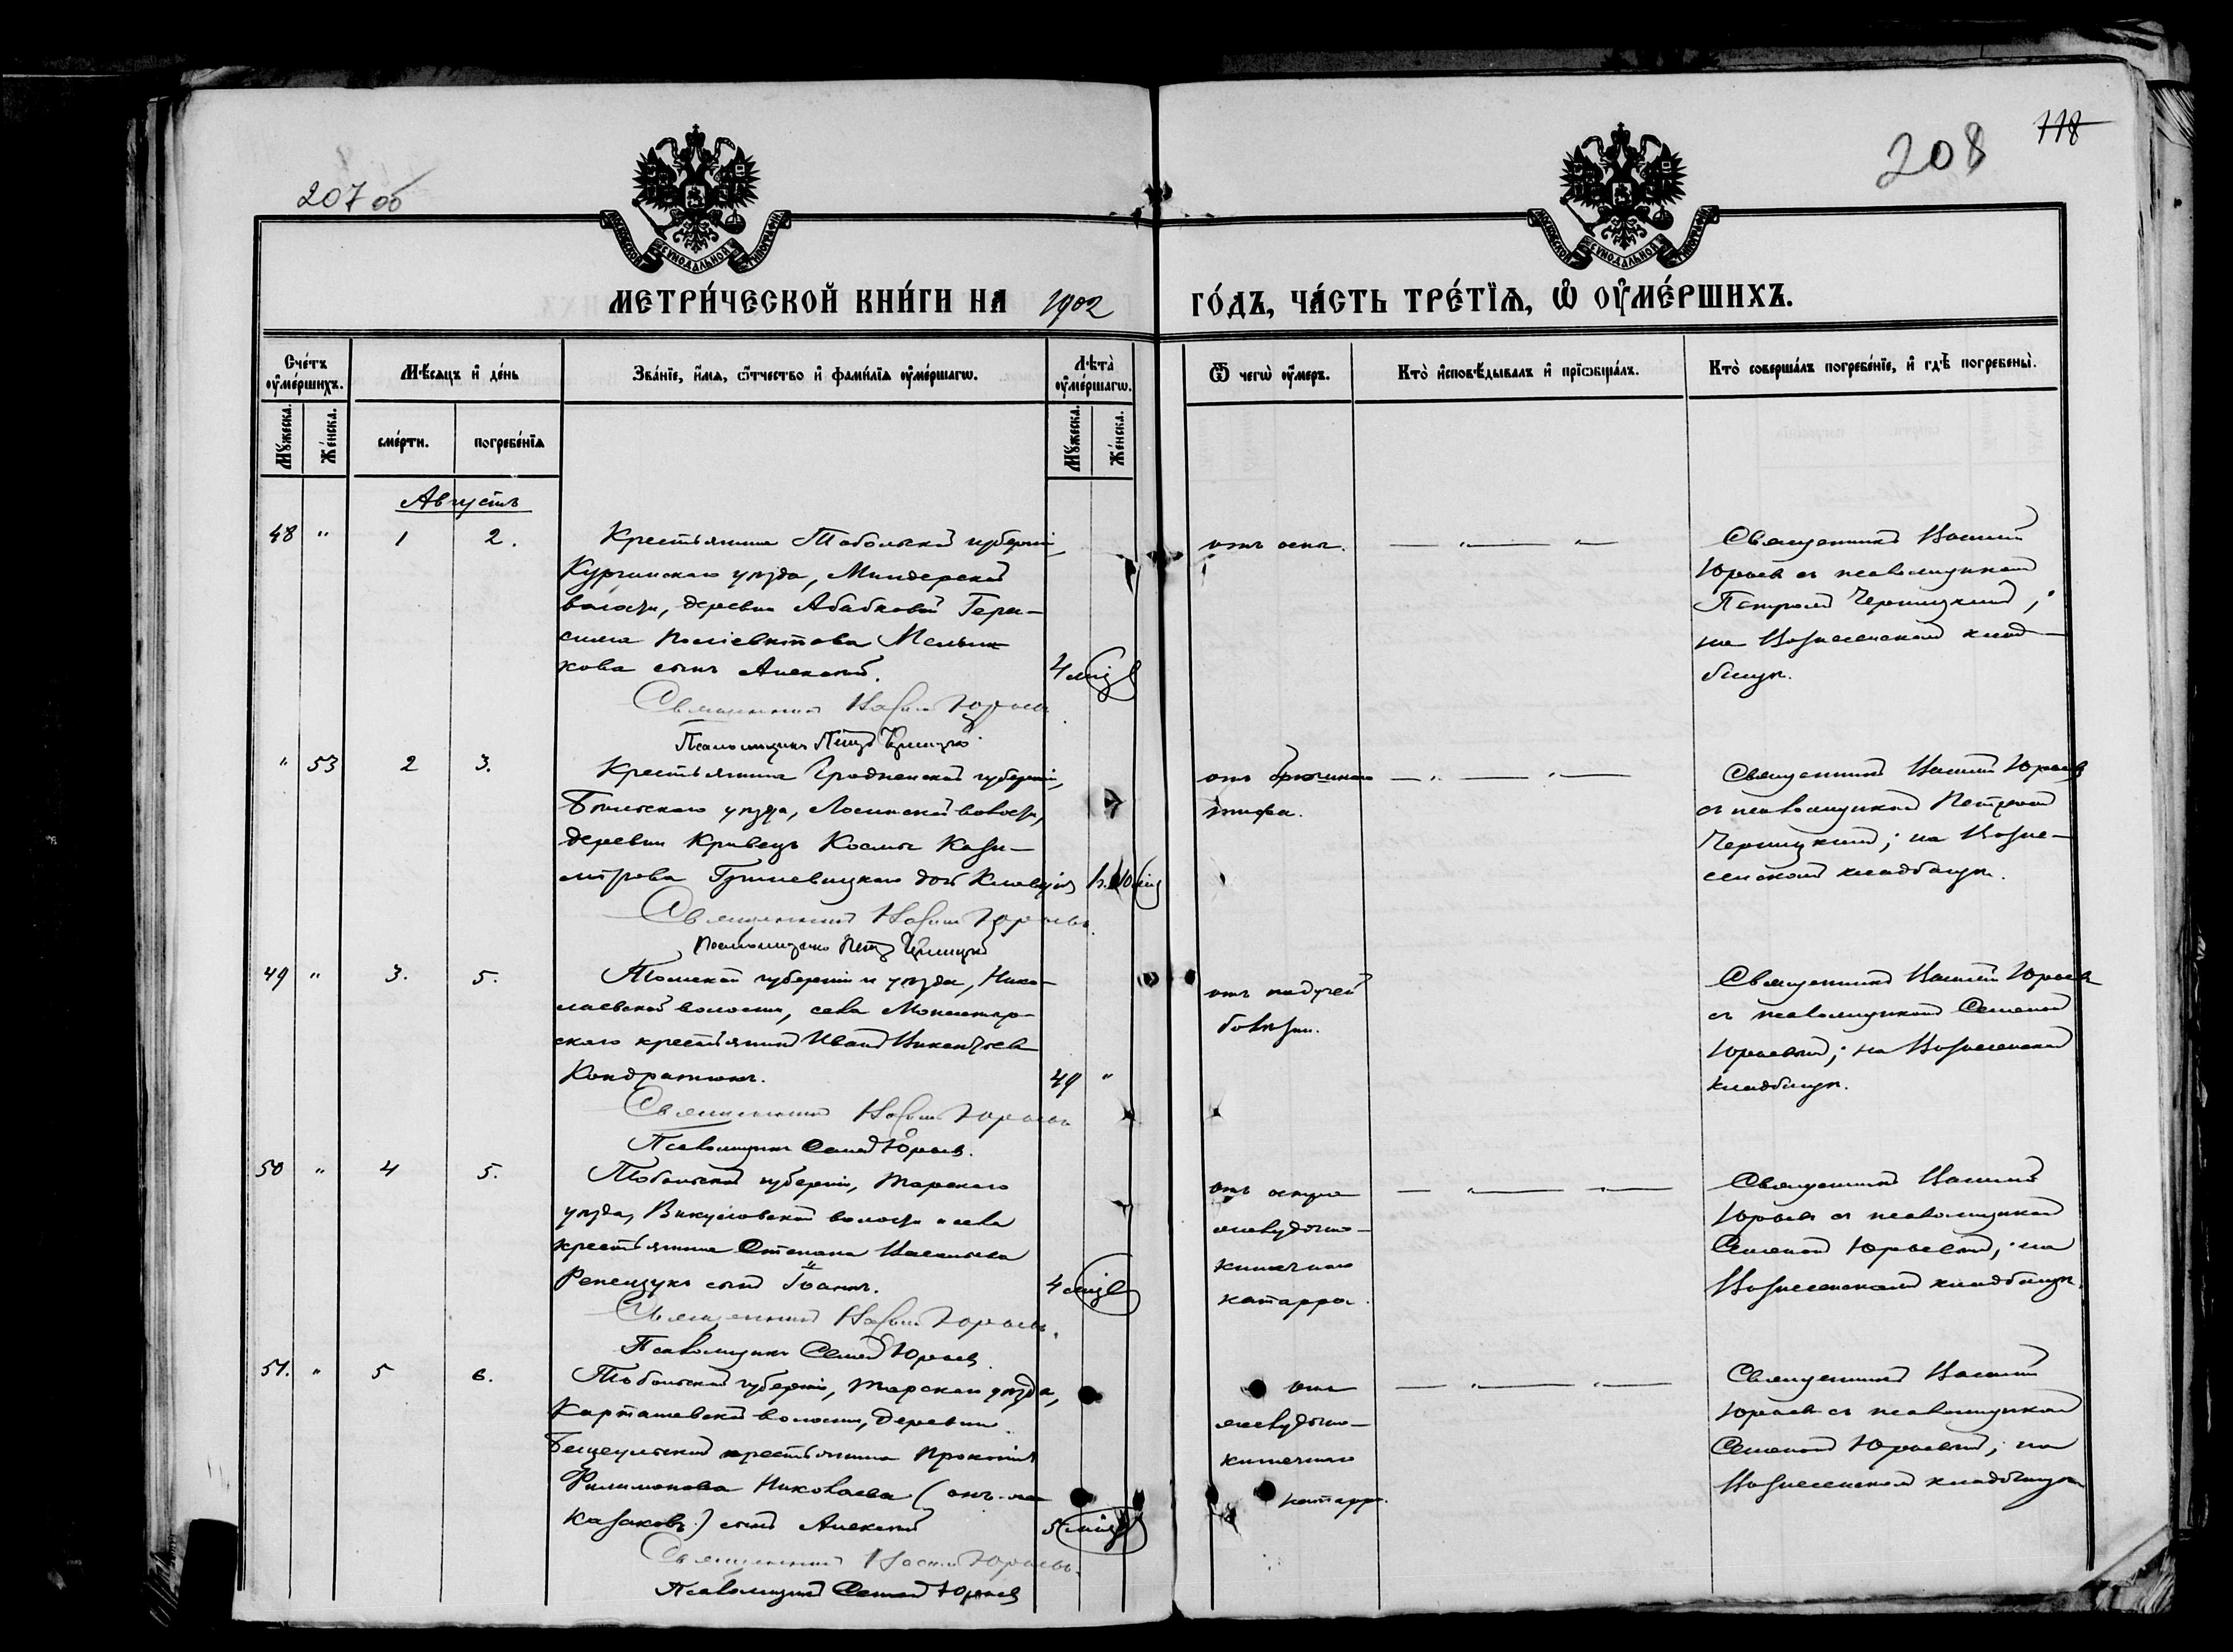 207 об
208
118
МОСКОВСКОЙ СѴНОДАЛЬНОЙ ТИПОГРАФІИ
МОСКОВСКОЙ СѴНОДАЛЬНОЙ ТИПОГРАФІИ
МЕТРИ́ЧЕСКОЙ КНИ́ГИ НА 1902 ГО́ДЪ, ЧА́СТЬ ТРЕ́ТЇѦ, Ѡ҆ ОУ҆МЕ́РШИХЪ.
Сче́тъ оу҆ме́ршихъ.
Мꙋ́жеска.
Же́нска.
Мѣ́сѧцъ и҆ де́нь
сме́рти.
погребе́нїѧ
Зва́нїе, и҆́мѧ, ѻ҆́тчество и҆ фами́лїѧ оу҆ме́ршагѡ.
Лѣ́та оу҆ме́ршагѡ.
Мꙋ́жеска.
Же́нска.
Ѿ чегѡ̀ оу҆́меръ.
Кто̀ и҆сповѣ́дывалъ и҆ прїѡбща́лъ.
Кто̀ соверша́лъ погребе́нїе, и҆ гдѣ̀ погребены̀.
Августъ
48 " 1 2.
Крестьянина Тобольской губерніи,
Курганскаго уѣзда, Мендерской
волости, деревни Абабковой Гера-
сима Поліевктова Мельни-
кова сынъ Алексѣй.
4 мѣс.
Священникъ Василій Юрьевъ
Псаломщикъ Петръ Черницкій.
отъ оспы.
Священникъ Василій
Юрьевъ съ псаломщикомъ
Петромъ Черницкимъ;
на Вознесенскомъ клад-
бищѣ.
" 53 2 3.
Крестьянина Гродненской губерніи,
Бѣльскаго уѣзда, Лосинской волости,
деревни Кривецъ Космы Кази-
мірова дочь Клавдія
Священникъ Василій Юрьевъ.
Псаломщикъ Петръ Черницкій
отъ брюшного
тифа.
Священникъ Василій Юрьевъ
съ псаломщикомъ Петромъ
Черницкимъ; на Возне-
сенскомъ кладбищѣ.
49 " 3. 5.
Томской губерніи и уѣзда, Нико-
лаевской волости, села Монастыр-
скаго крестьянинъ Иванъ Викентьевъ
Кондратюкъ.
49 "
Священникъ Василій Юрьевъ
Псаломщикъ Семенъ Юрьевъ.
отъ падучей
болѣзни.
Священникъ Василій Юрьевъ
съ псаломщикомъ Семеномъ
Юрьевымъ; на Вознесенскомъ
кладбищѣ.
50 " 4 5.
Тобольской губерніи, Тарскаго
уѣзда, Викуловской волости и села
крестьянина Степана Васильева
Репещукъ сынъ Іоаннъ.
4 мѣс.
Священникъ Василій Юрьевъ.
Псаломщикъ Семенъ Юрьевъ.
отъ остраго
желудочно-
кишечнаго
катарра.
Священникъ Василій
Юрьевъ съ псаломщикомъ
Семеномъ Юрьевымъ; на
Вознесенскомъ кладбищѣ.
51. " 5 6.
Тобольской губерніи, Тарскаго уѣзда,
Карташевской волости, деревни
крестьянина Прокопія
Филимонова Николаева (онъ-же
Казаковъ) сынъ Алексѣй
5 мѣс.
Священникъ Василій Юрьевъ.
Псаломщикъ Семенъ Юрьевъ
отъ
желудочно-
кишечнаго
катарра.
Священникъ Василій
Юрьевъ съ псаломщикомъ
Семеномъ Юрьевымъ; на
Вознесенскомъ кладбищѣ